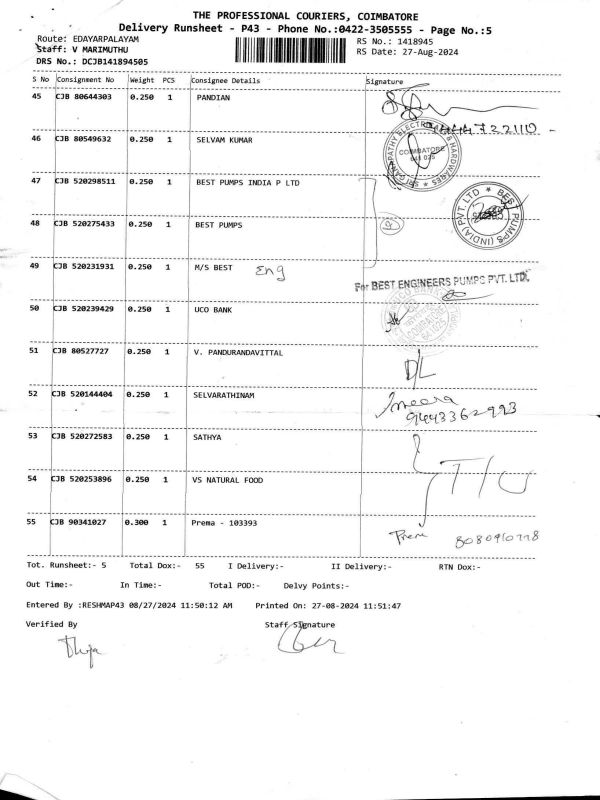 THE PROFESSIONAL COURIERS, COIMBATORE
Delivery Runsheet - P43 - Phone No.:0422-3505555 - Page No.:5
Route: EDAYARPALAYAM
RS No.: 1418945
Staff: V MARIMUTHU
RS Date: 27-Aug-2024
DRS No.: DCJB141894505
S No Consignment No Weight PCS Consignee Details Signature
45 CJB 80644303 0.250 1 PANDIAN
46 CJB 80549632 0.250 1 SELVAM KUMAR
SRI GANAPATHY ELECTRICALS & HARDWARES
COIMBATORE
641 025
47 CJB 520298511 0.250 1 BEST PUMPS INDIA P LTD
BEST PUMPS (INDIA) PVT. LTD
48 CJB 520275433 0.250 1 BEST PUMPS
49 CJB 520231931 0.250 1 M/S BEST Eng
For BEST ENGINEERS PUMPS PVT. LTD.
50 CJB 520239429 0.250 1 UCO BANK
51 CJB 80527727 0.250 1 V. PANDURANDAVITTAL D/L
52 CJB 520144404 0.250 1 SELVARATHINAM
9443362993
53 CJB 520272583 0.250 1 SATHYA
54 CJB 520253896 0.250 1 VS NATURAL FOOD
55 CJB 90341027 0.300 1 Prema - 103393
Tot. Runsheet:- 5 Total Dox:- 55 I Delivery:- II Delivery:- RTN Dox:-
Out Time:- In Time:- Total POD:- Delvy Points:-
Entered By :RESHMAP43 08/27/2024 11:50:12 AM Printed On: 27-08-2024 11:51:47
Verified By Staff Signature